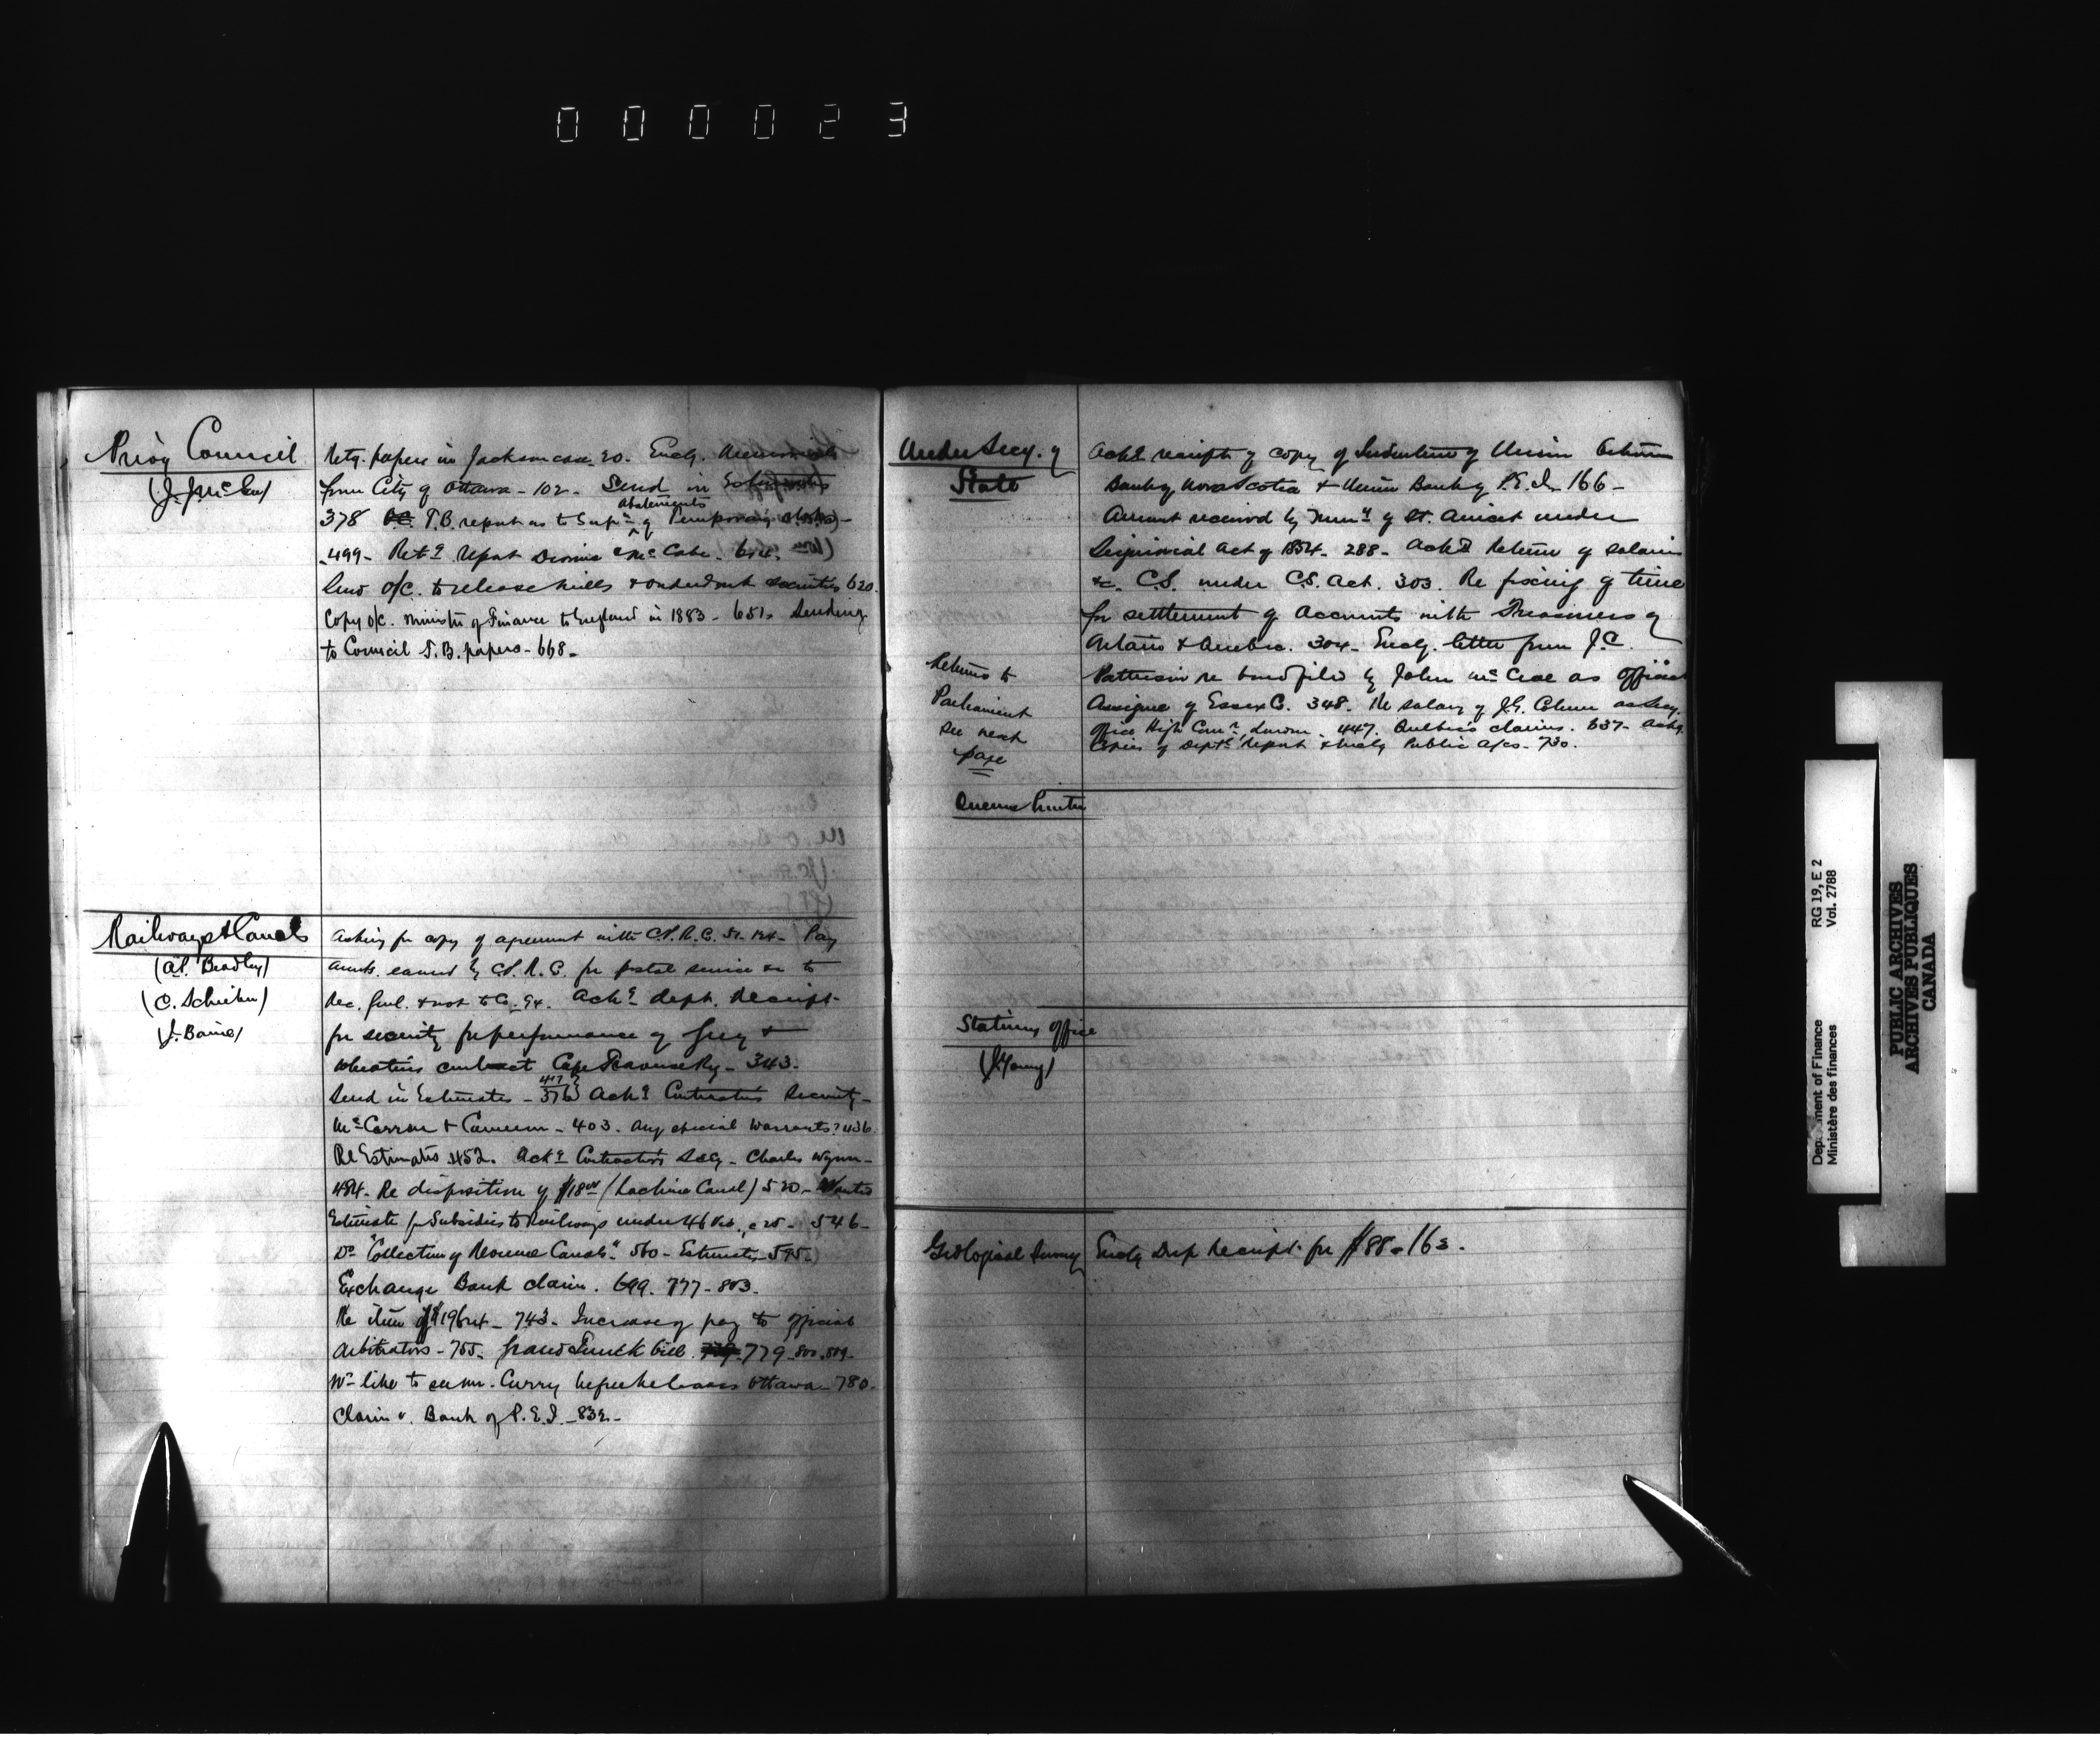 000023
Privy Council
(J. J. McGee)
Retg. papers in Jackson case 20. Encg.
from City of Ottawa - 102. Send in Estimates
abatements
378 T.B. report as to Supn of Temporary clerks -
499 - Retd report Dionne McCabe - 614.
Send O/C. to release Mills & other securities 620.
Copy O/C. Minister of Finance to England in 1883 - 651. Sending
to Council T.B. papers - 668 -
Railways & Canals
(A.P. Bradley)
(C. Schreiber)
(J. Baine)
Asking for copy of agreement with C.P.R.C. 51. 124 - Pay
amts. earned by C.P.R.C. for postal service &c to
Rec. Genl. & not to Co. 94. Ackg dept. Receipt
for security for performance of
contract Cape Traverse Ry - 343.
417
Send in Estimates - 376 Ackg Contractors Security -
McCarron & Cameron - 403. Any special Warrants? 436.
Re Estimates 452. Ackg Contractors Secy - Charles Wynn -
484 - Re disposition of $18 (Lachine Canal) 520 - Wanted
Estimate for Subsidies to Railways under 46 Vic., c 25 - 546 -
Do "Collection of Revenue Canals" 560 - Estimates 595 -
Exchange Bank claim. 699. 777 - 803.
Re item of $196 - 743 - Increase of pay to official
Arbitrators - 755. Grand Trunk bill 779 - 800. 809 -
Wd like to see Mr. Curry before he leaves Ottawa - 780.
Claim v. Bank of P.E.I. - 832 -
Under Secy. of
State
Ackg receipt of copy of Indenture of Union between
Bank of Nova Scotia & Union Bank of P.E.I. 166 -
Amount received by Muny of St. Anicet under
Seigniorial Act of 1854 - 288 - Ackg Return of salaries
&c. C.S. under C.S. Act. 303. Re fixing of time
for settlement of Accounts with Treasurers of
Ontario & Quebec. 304 - Encg. letter from J.C.
Patterson re bond filed by John McCrae as Official
Assignee of Essex Co. 348. Re salary of J.G. Colmer as Secy.
office High Comr, London. 447. Quebec's claims. 637 - Ackg
Copies of Depts report & Public A/cs - 730.
Returns to
Parliament
see next
page
Queens Printer
Stationy Office
(J. Young)
Geological Survey
Encg Dep Receipt for $88 - 162.
RG 19, E 2
Vol. 2788
Department of Finance
Ministère des finances
PUBLIC ARCHIVES
ARCHIVES PUBLIQUES
CANADA